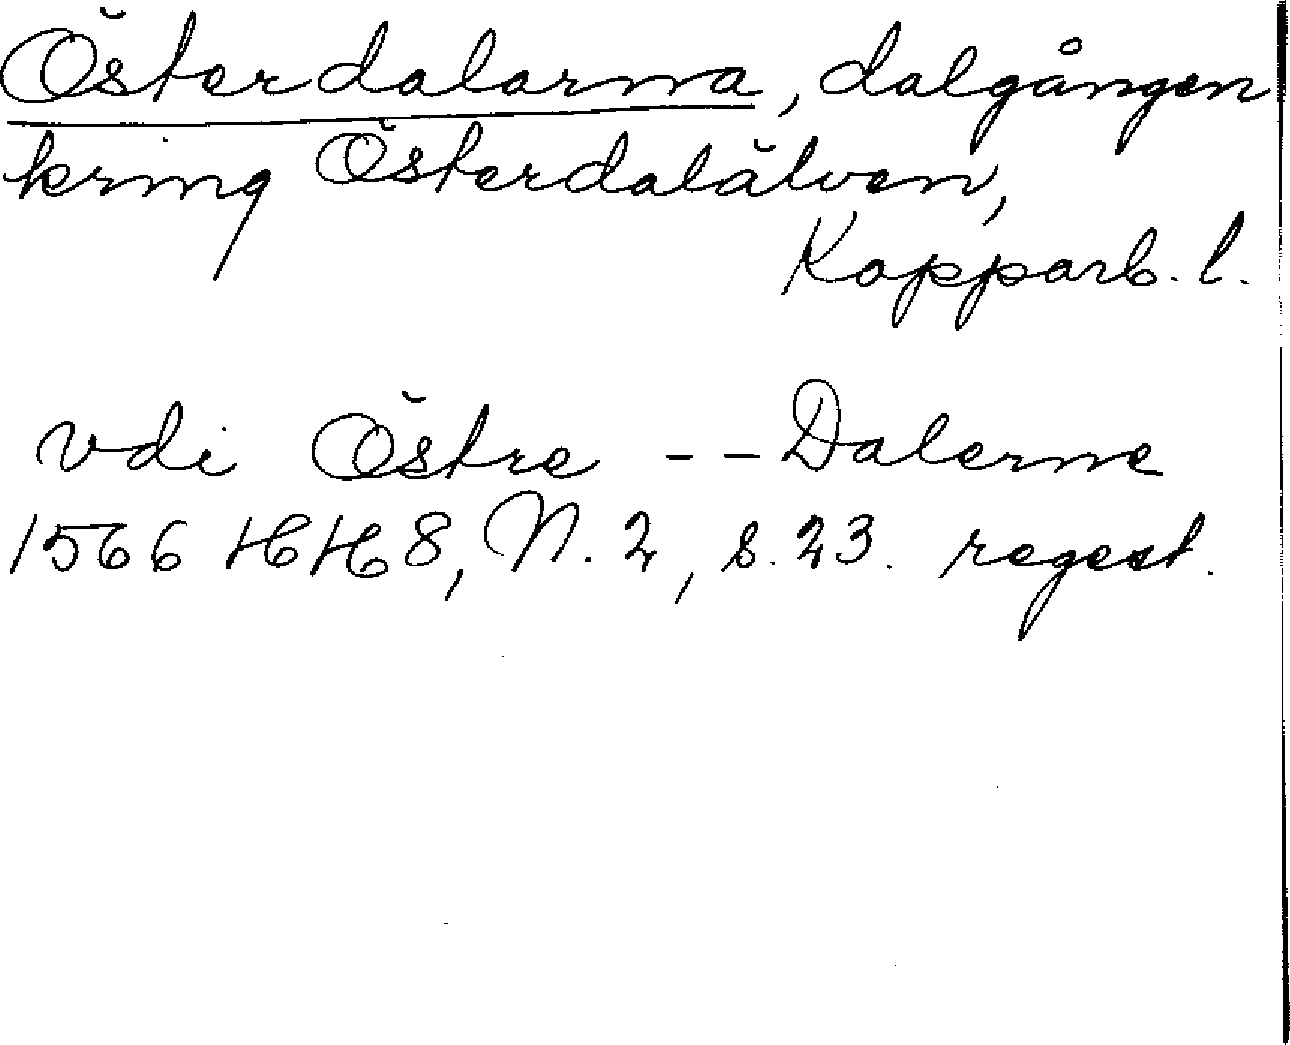 Österdalarna, dalgången
kring Österdalälven,
Kopparb. l.
vdi Östre -- Dalerne
1566 HH 8, N. 2, s. 23. regest.